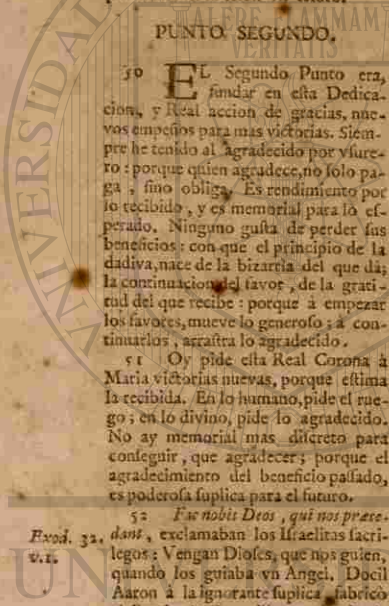 PUNTO SEGUNDO.
50 EL Segundo Punto era,
fundar en esta Dedica-
cion, y Real accion de gracias, nue-
vos empeños para mas victorias. Siem-
pre he tenido al agradecido por vsure-
ro: porque quien agradece, no solo pa-
ga, sino obliga. Es rendimiento por
lo recibido, y es memorial para lo es-
perado. Ninguno gusta de perder sus
beneficios: con que el principio de la
dadiva, nace de la bizarria del que dá;
la continuacion del favor, de la grati-
tud del que recibe: porque á empezar
los favores, mueve lo generoso; á con-
tinuarlos, arrastra lo agradecido.
51 Oy pide esta Real Corona á
Maria victorias nuevas, porque estima
la recibida. En lo humano, pide el rue-
go; en lo divino, pide lo agradecido.
No ay memorial mas discreto para
conseguir, que agradecer; porque el
agradecimiento del beneficio passado,
es poderosa suplica para el futuro.
52 Fac nobis Deos, qui nos præce-
Exod. 32. dant, exclamaban los Israelitas sacri-
v.1. legos: Vengan Dioses, que nos guien,
quando los guiaba vn Angel. Docil
Aaron á la ignorante suplica, fabricó